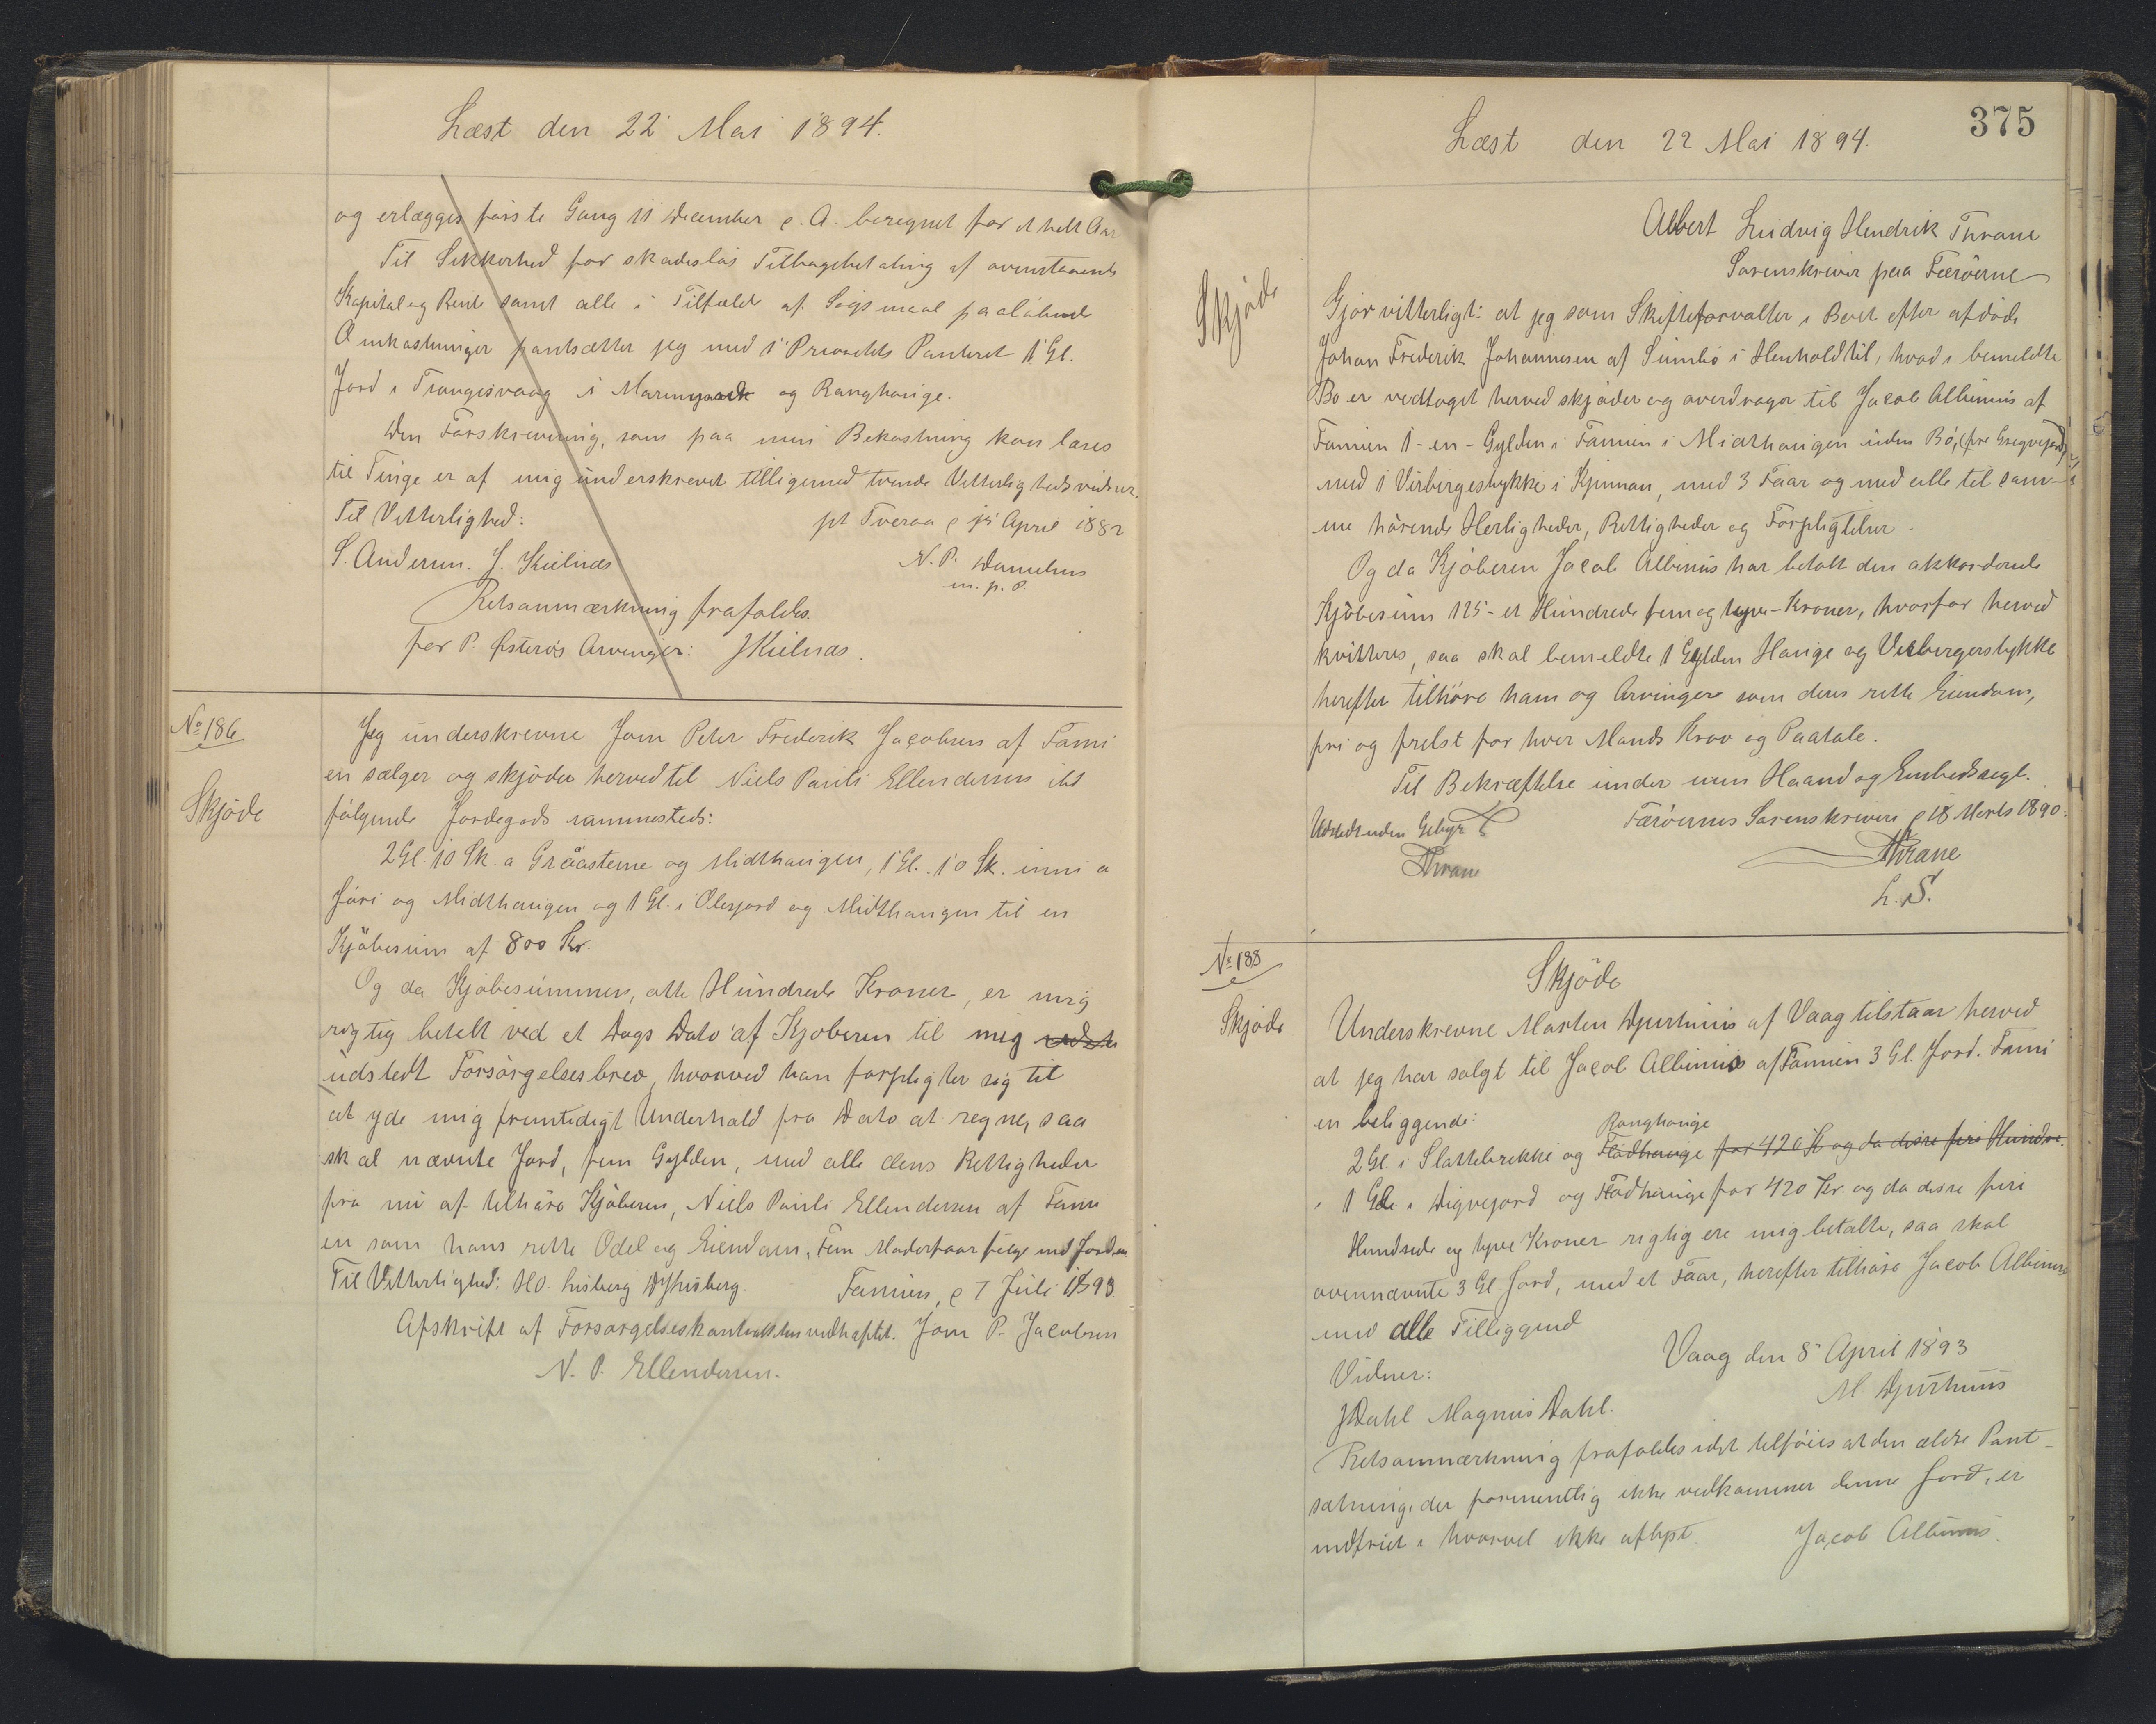 Læst den 22 Mai 1894.
og erlægges første Gang 11 December e. A. beregnet for et helt Aar
Til Sikkerhed for skadesløs Tilbagebetaling af ovenstaaende
Kapital og Rente samt alle i Tilfælde af Søgsmaal paaløbende
Omkostninger pantsætter jeg med 1 Prioritets Panteret 1 Gl.
Jord i Trangisvaag i og Ranghauge.
Den Forskrivning, som paa min Bekostning kan læses
til Tinge er af mig underskrevet tilligemed tvende Vitterlighedsvidner.
Til Vitterlighed: pt Tveraa April 1882
S. Andersen. J. Kielnæs N. P. Danielsen
m. p. P.
Retsanmærkning frafaldes.
for P. Østerøs Arvinger: JKielnæs.
No 186
Skjøde
Jeg underskrevne Joen Peter Frederik Jacobsen af Fami
en sælger og skjøder herved til Niels Pauli Ellendersen ibd
følgende Jordegods sammesteds:
2 Gl. 10 Sk. a Gråasterne og Midthaugen, 1 Gl. 10 Sk. inni a
Jøri og Midthaugen og 1 Gl. i Olesjord og Midthaugen til en
Kjøbesum af 800 Kr.
Og da Kjøbesummen, otte Hundrede Kroner, er mig
rigtig betalt ved et Dags Dato af Kjøberen til mig
udstedt Forsørgelsesbrev, hvorved han forpligter sig til
at yde mig fremtidigt Underhold fra Dato at regne, saa
skal nævnte Jord, fem Gylden, med alle dens Rettigheder
fra nu af tilhøre Kjøberen, Niels Pauli Ellendersen af Fami
en som hans rette Odel og Eiendom. Fem Moderfaar følge med Jorden
Til Vitterlighed: H.O. Lisberg DJLisberg. Famien, e 7 Juli 1893.
Afskrift af Forsørgelseskontrakten vedhæftet. Joen P. Jacobsen
N. P. Ellendersen.
375
Læst den 22 Mai 1894.
Albert Ludvig Hendrik Thrane
Sorenskriver paa Færøerne
Skjøde
Gjør vitterligt: at jeg som Skifteforvalter i Boet efter afdøde
Johan Frederik Johannesen af Sumbø i Henhold til, hvad i bemeldte
Bo er vedtaget herved skjøder og overdrager til Jacob Albinus af
Famien 1 - en - Gylden i Famien i Midthaugen uden Bø,
med 1 Virbirgestykke i Kjunnan, med 3 Faar og med alle til sam-
me hørende Herligheder, Rettigheder og Forpligtelser.
Og da Kjøberen Jacob Albinus har betalt den akkorderede
Kjøbesum 125 - et Hundrede fem og tyve - Kroner, hvorfor herved
kvitteres, saa skal bemeldte 1 Gylden Hauge og Virbergerstykke
herefter tilhøre ham og Arvinger som deres rette Eiendom,
fri og frelst for hver Mands Krav og Paatale.
Til Bekræftelse under min Haand og Embedssegl.
Udstedt uden Gebyr Færøernes Sorenskriveri e 18 Marts 1890.
Thrane Thrane
L. S.
No 188
Skjøde
Skjøde
Underskrevne Morten Djurhuus af Vaag tilstaar herved
at jeg har solgt til Jacob Albinus af Famien 3 Gl. Jord. Fami
en beliggende:
Ranghauge
2 Gl. i Slattebrekke og Flødhauge for 420 Kr og da disse fire Hundre
1 Gl. i Digvejord og Flødhauge for 420 Kr. og da disse fire
Hundrede og tyve Kroner rigtig ere mig betalte, saa skal
ovennævnte 3 Gl. Jord, med et Faar, herefter tilhøre Jacob Albinus
med alle Tilliggend
Vaag den 8 April 1893
Vidner: M Djurhuus
JDahl Magnus Dahl.
Retsanmærkning frafaldes idet tilføies at den ældre Pant-
sætning, der formentlig ikke vedkommer denne Jord, er
indfriet i hvorvel ikke aflyst. Jacob Albinus.